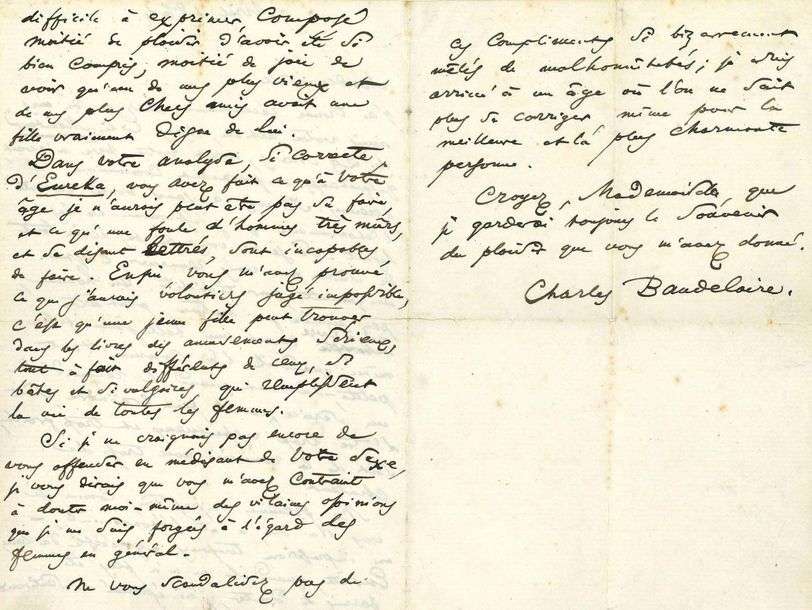 difficile à exprimer composé
moitié de plaisir d'avoir été si
bien compris, moitié de joie de
voir qu'un de mes plus vieux et
de mes plus chers amis avait une
fille vraiment digne de lui.
Dans votre analyse, si correcte,
d'Eureka, vous avez fait ce qu'à votre
âge je n'aurais peut être pas su faire,
et ce qu'une foule d'hommes très mûrs,
et se disant lettrés, sont incapables
de faire. Enfin vous m'avez prouvé
ce que j'aurais volontiers jugé impossible,
c'est qu'une jeune fille peut trouver
dans les livres des amusements sérieux,
tout à fait différents de ceux, si
bêtes et si vulgaires qui remplissent
la vie de toutes les femmes.
Si je ne craignais pas encore de
vous offenser en médisant de votre sexe,
je vous dirais que vous m'avez contraint
à douter moi-même des vilaines opinions
que je me suis forgées à l'égard des
femmes en général.
Ne vous scandalisez pas de
ces compliments si bizarrement
mêlés de malhonnêtetés ; je suis
arrivé à un âge où l'on ne sait
plus se corriger même pour la
meilleure et la plus charmante
personne.
Croyez, Mademoiselle, que
je garderai toujours le souvenir
du plaisir que vous m'avez donné.
Charles Baudelaire.